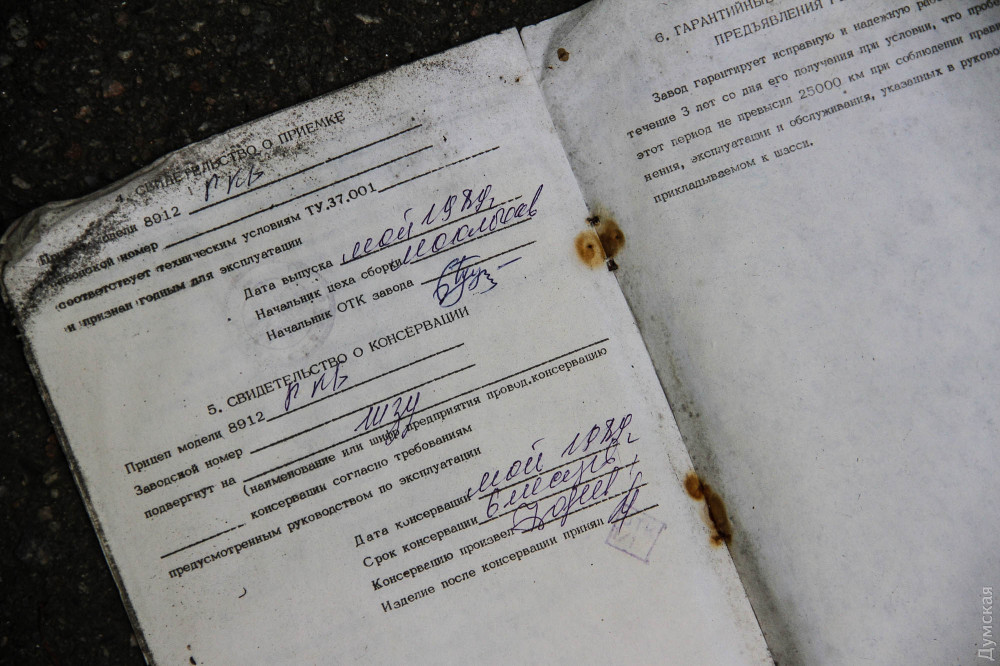 4. СВИДЕТЕЛЬСТВО О ПРИЕМКЕ
модели 8912 ПКВ
номер
соответствует техническим условиям ТУ.37.001
и признан годным для эксплуатации
Дата выпуска май 1989г
Начальник цеха сборки
Начальник ОТК завода
5. СВИДЕТЕЛЬСТВО О КОНСЕРВАЦИИ
Прицеп модели 8912 ПКВ
Заводской номер
подвергнут на
(наименование или шифр предприятия провод.консервацию
консервации согласно требованиям
предусмотренным руководством по эксплуатации
Дата консервации май 1989г
Срок консервации 6 месяцев
Консервацию произвел
Изделие после консервации принял
6. ГАРАНТИЙНЫЕ
ПРЕДЪЯВЛЕНИЯ
Завод гарантирует исправную и надежную
течение 3 лет со дня его получения при условии, что
этот период не превысил 25000 км при соблюдении
нения, эксплуатации и обслуживания, указанных в
прикладываемом к шасси.
Думская